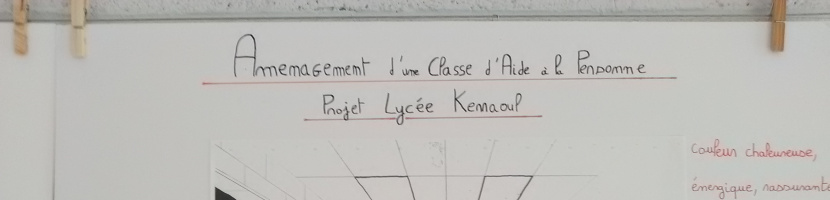 Amenagement d'une Classe d'Aide à la Personne
Projet Lycée Keraoul
Couleur chaleureuse,
énergique, rassurante